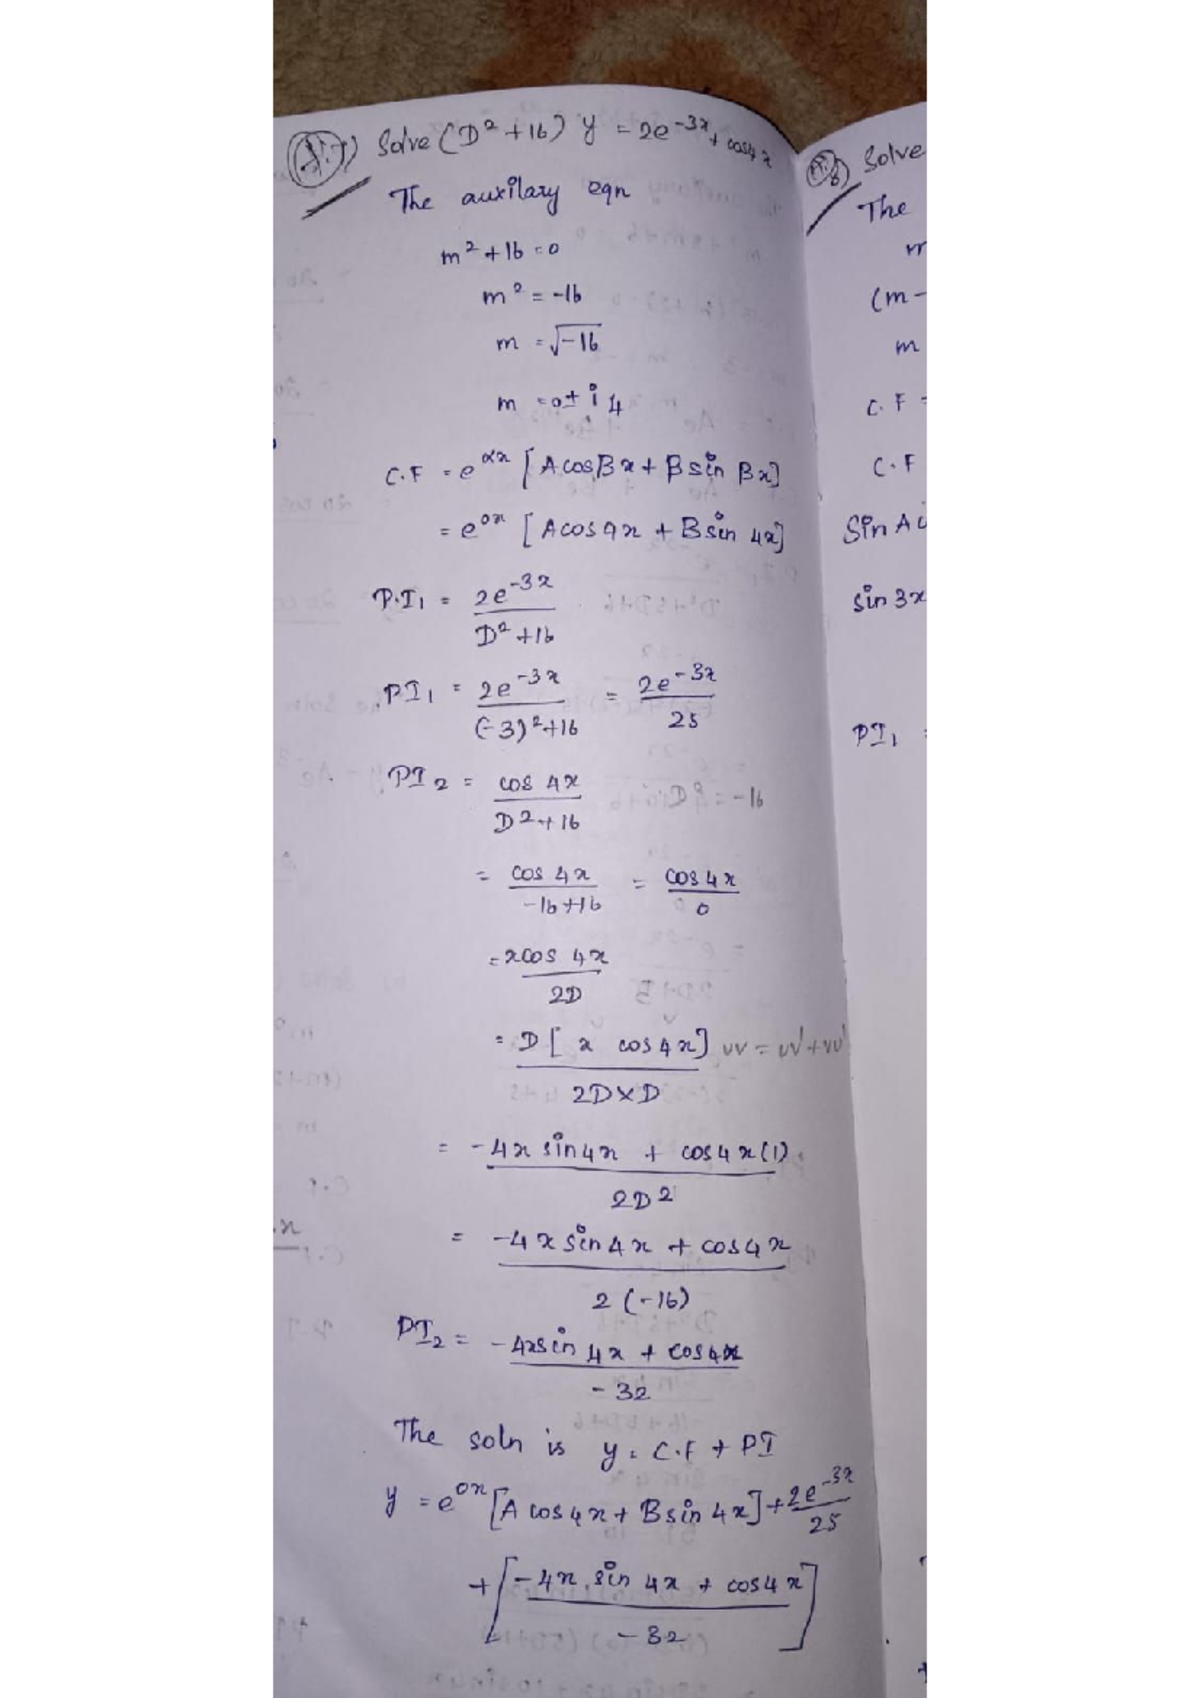 Solve (D² + 16) y = 2e^-3x + cos4x
The auxilary eqn
m² + 16 = 0
m² = -16
m = √-16
m = 0 ± i 4
C.F = e^αx [A cosBx + B sin Bx]
= e^0x [A cos4x + B sin 4x]
P.I₁ = 2e^-3x / D² + 16
PI₁ = 2e^-3x / (-3)² + 16 = 2e^-3x / 25
PI₂ = cos 4x / D² + 16 ∴ D² = -16
= cos 4x / -16+16 = cos 4x / 0
= x cos 4x / 2D
= D [ x cos 4x ] / 2D × D uv = uv' + vu'
= -4x sin4x + cos4x(1) / 2D²
= -4x sin4x + cos4x / 2(-16)
PI₂ = -4x sin 4x + cos4x / -32
The soln is y = C.F + PI
y = e^0x [A cos4x + B sin 4x] + 2e^-3x / 25
+ [ -4x sin 4x + cos4x / -32 ]
Solve
The
m
(m-
m
C.F =
C.F
Sin A
sin 3x
PI₁ =